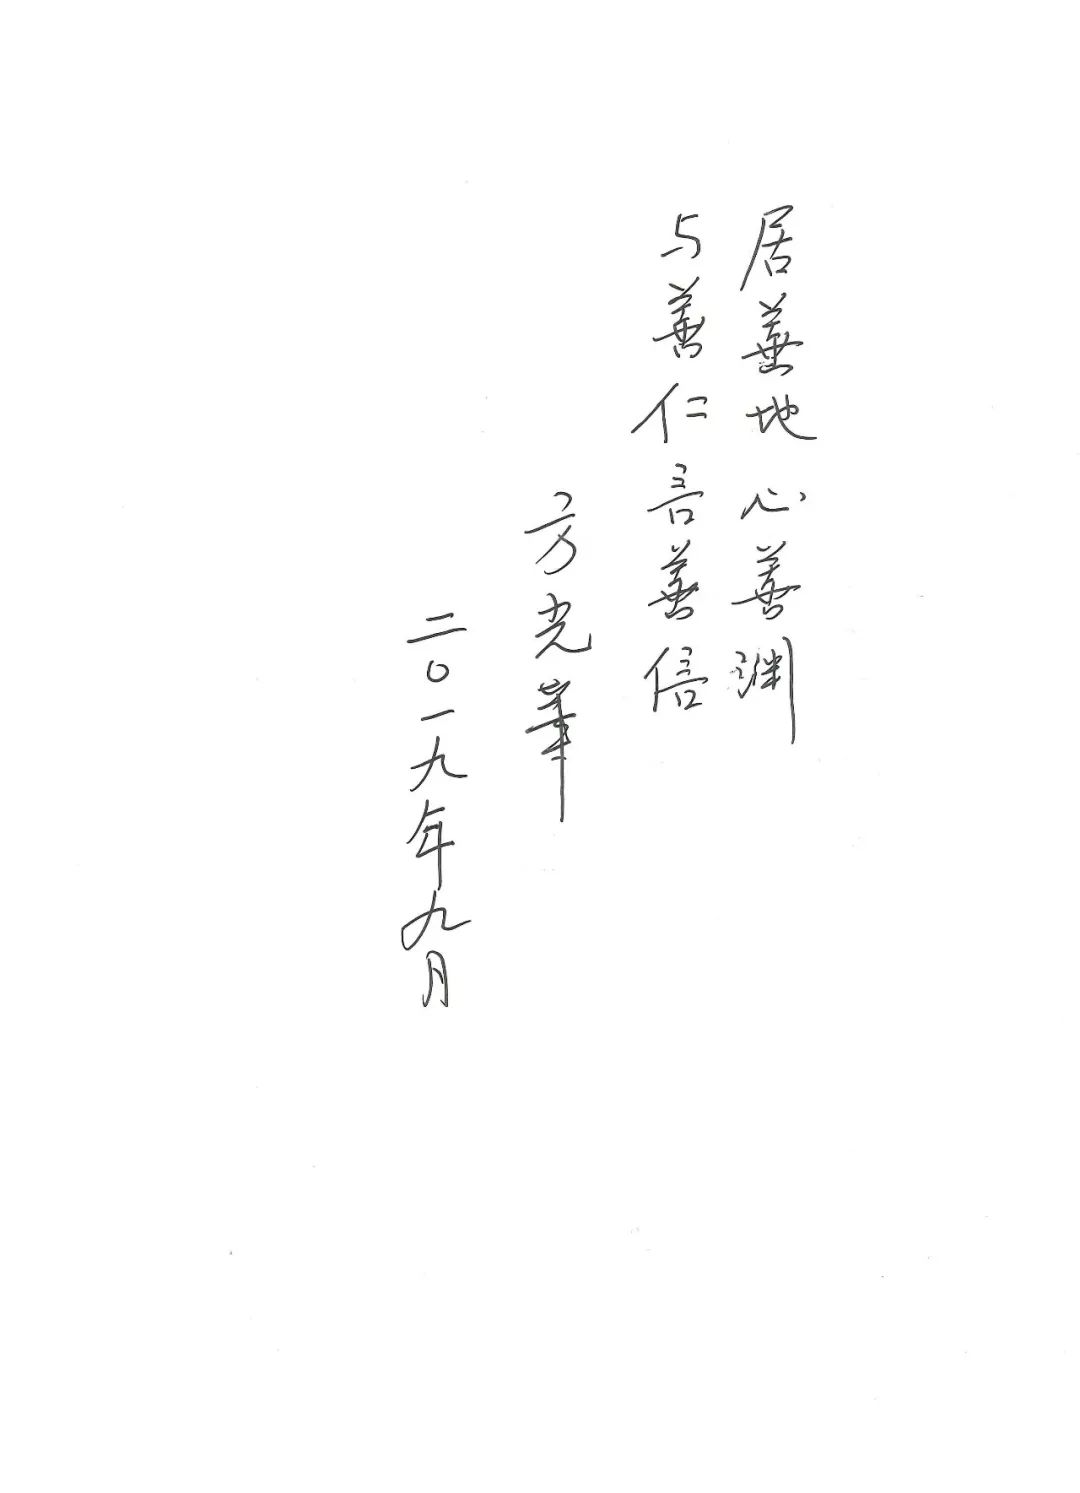 居善地心善渊
与善仁言善信
方光華
二〇一九年九月